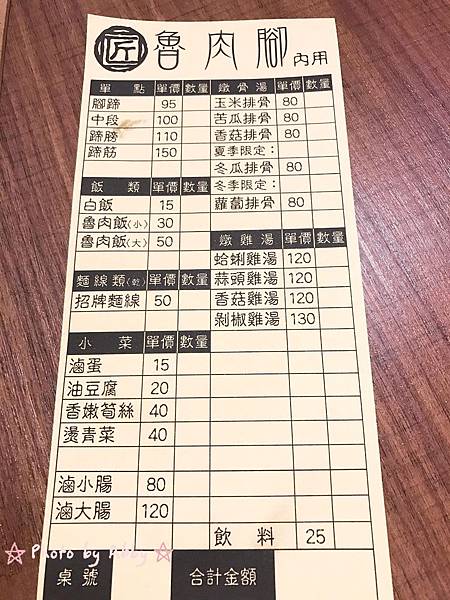 匠 魯肉腳 內用
單點 單價 數量
腳蹄 95
中段 100
蹄膀 110
蹄筋 150
飯類 單價 數量
白飯 15
魯肉飯(小) 30
魯肉飯(大) 50
麵線類(乾) 單價 數量
招牌麵線 50
小菜 單價 數量
滷蛋 15
油豆腐 20
香嫩筍絲 40
燙青菜 40
滷小腸 80
滷大腸 120
燉骨湯 單價 數量
玉米排骨 80
苦瓜排骨 80
香菇排骨 80
夏季限定：
冬瓜排骨 80
冬季限定：
蘿蔔排骨 80
燉雞湯 單價 數量
蛤蜊雞湯 120
蒜頭雞湯 120
香菇雞湯 120
剝椒雞湯 130
飲料 25
桌號 合計金額
☆ Photo by Abby ☆